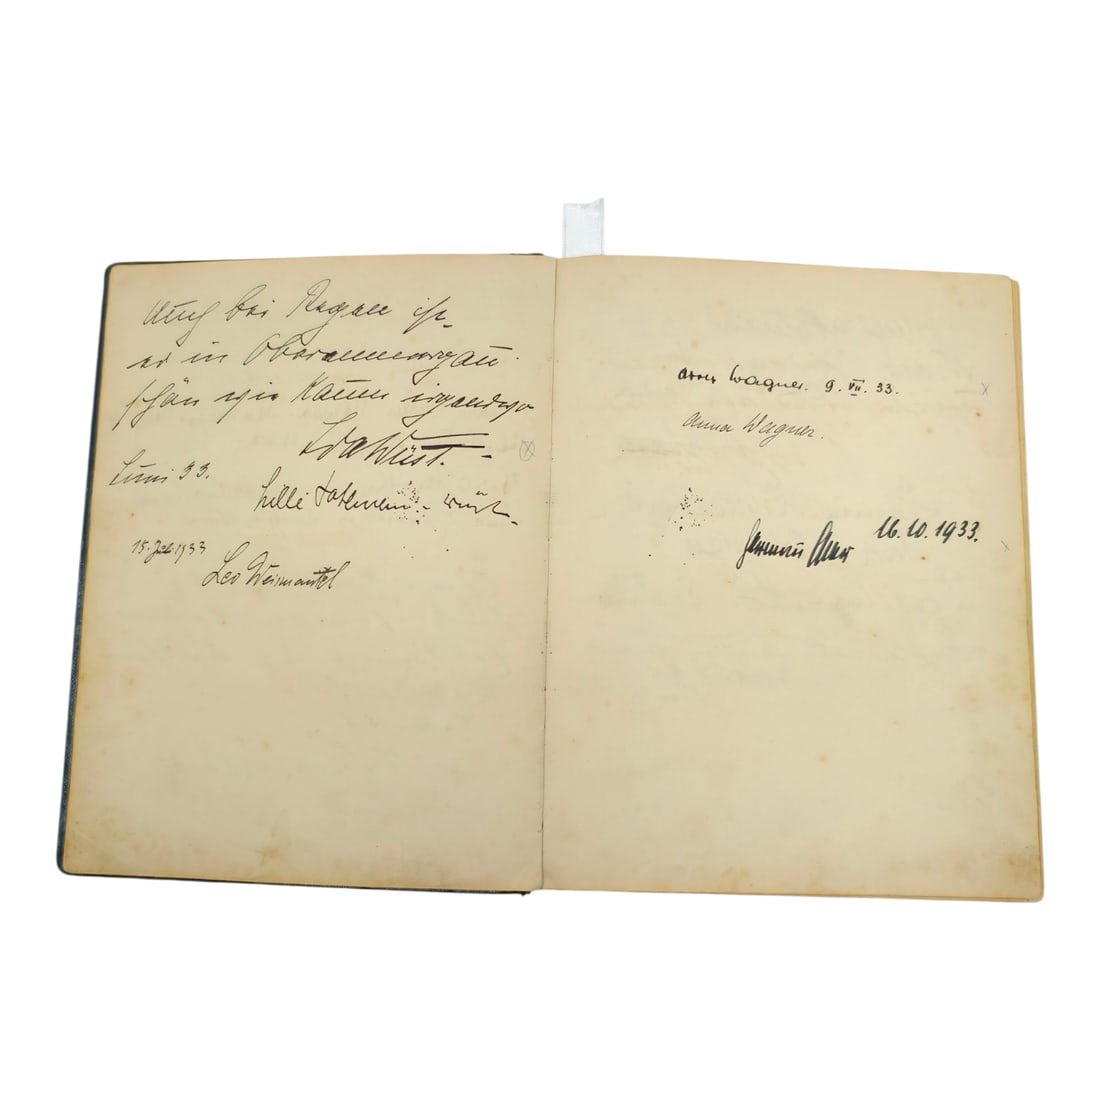 Auch bei Regen ist
es in Oberammergau
schön wie kaum irgendwo
Ida Wüst.
Juni 33.
15. Juli 1933
Leo Weismantel
Wagner. 9. VII. 33.
Anna Wagner.
16.10.1933.